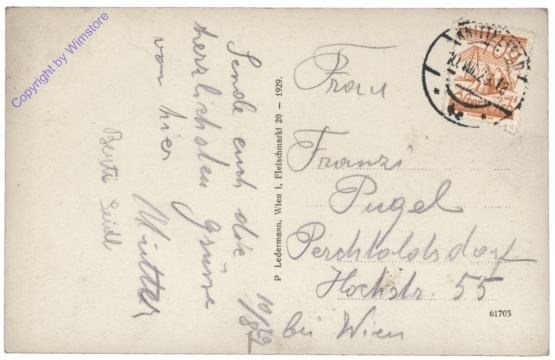 Copyright by Wimstore
Sende euch die
herrlichsten Grüsse
von hier
Mutter
Berti Seidl
P. Ledermann, Wien I, Fleischmarkt 20 — 1929.
KNITTELFELD
Frau
Franzi
Pugel
Perchtoldsdorf
Hochstr. 55
bei Wien
61705